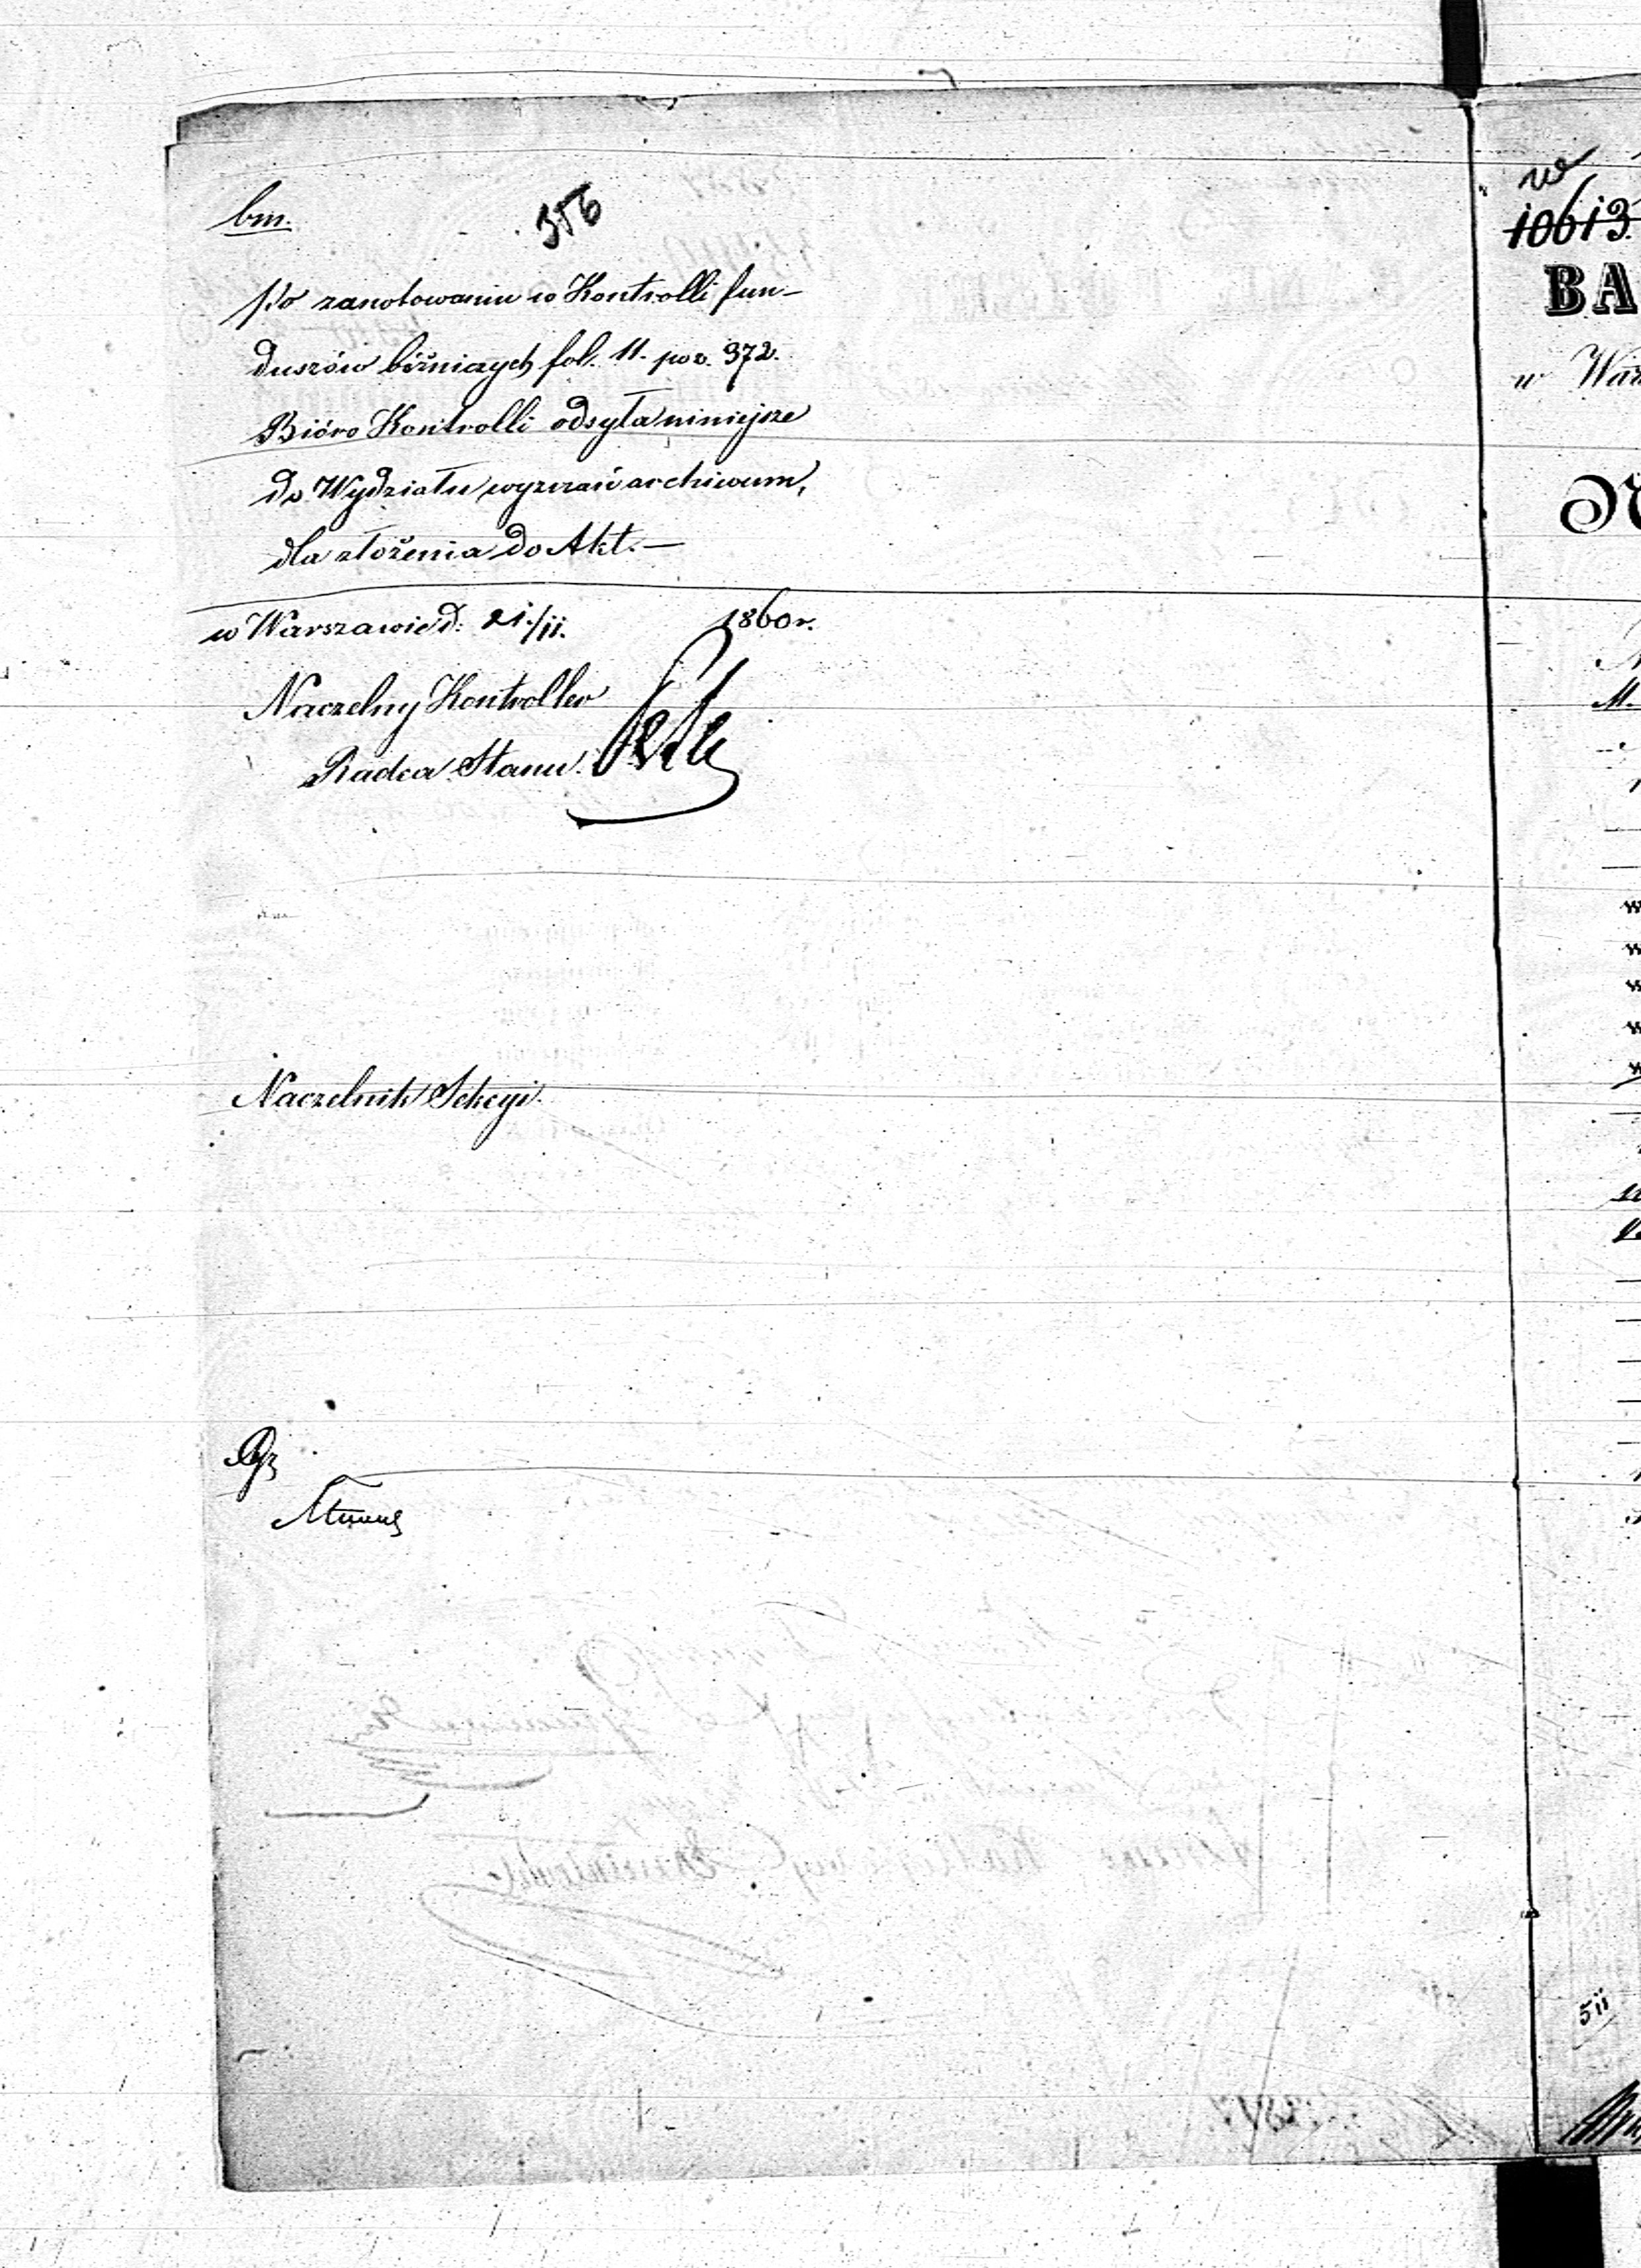 bm.
356
Po zanotowaniu w Kontrolli fun-
duszów bóżniczych fol. 11. poz. 372.
Bióro Kontrolli odsyła niniejsze
do Wydziału wyznań archiwum,
dla złożenia do Akt. —
w Warszawie d: 21/11. 1860 r.
Naczelny Kontroller
Radca Stanu.
Naczelnik Sekcyi.
10613
BA
w War
511